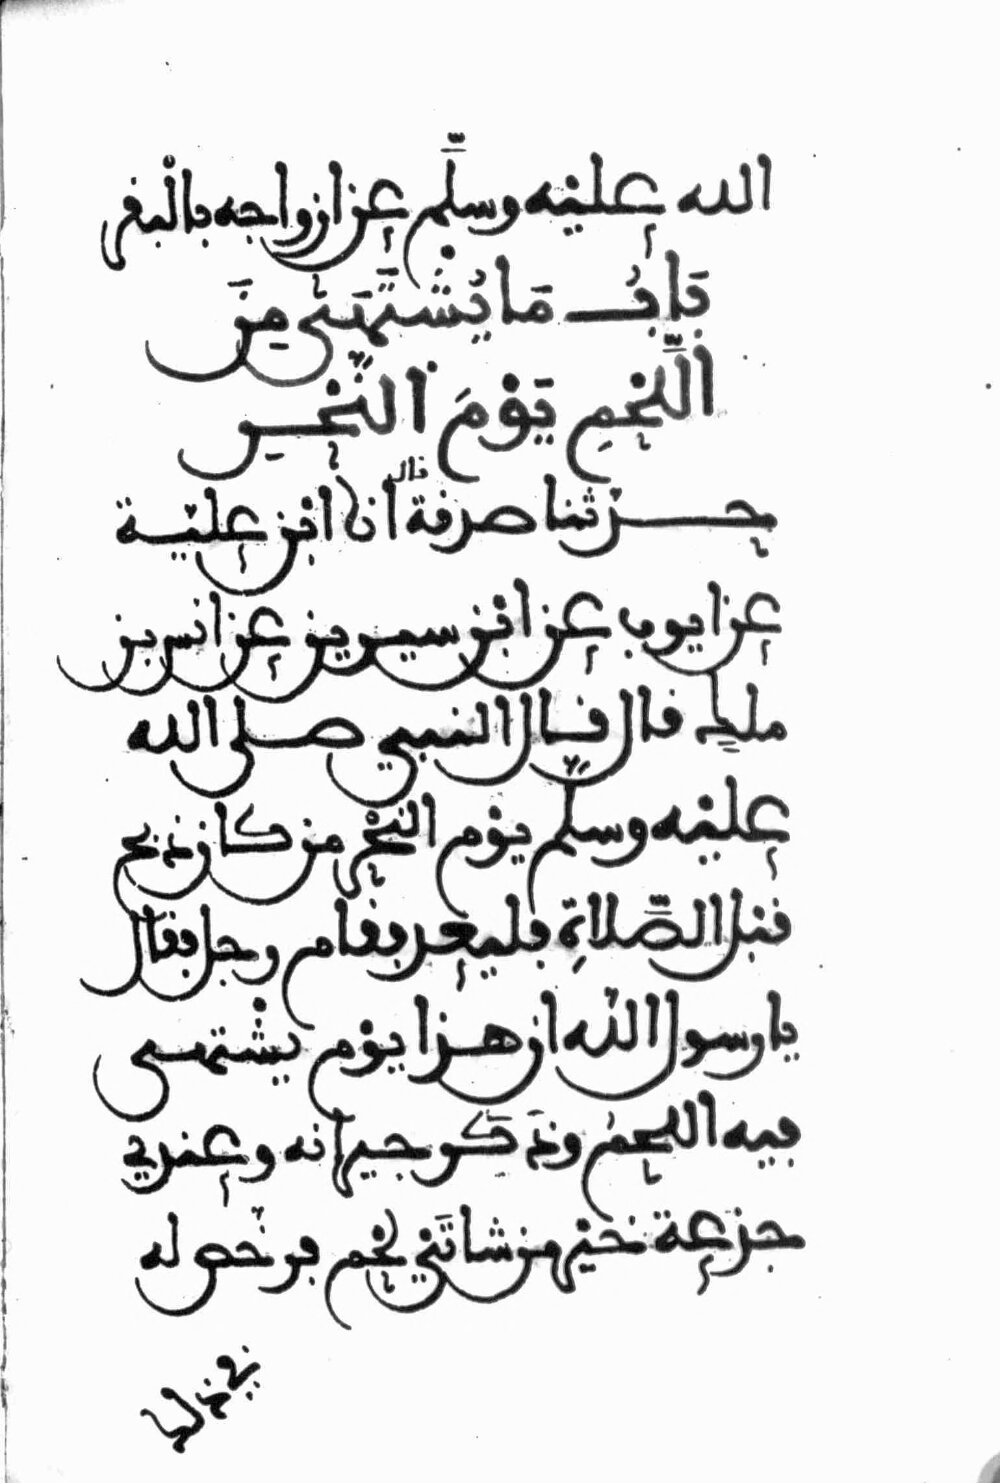 الله عليه وسلم عن ازواجه بالبقر
بَابُ مَا يُشْتَهَى مِنَ
اللَّحْمِ يَوْمَ النَّحْرِ
حدثنا صدقة قال انا ابن علية
عن ايوب عن ابن سيرين عن انس بن
ملك قال قال النبي صلى الله
عليه وسلم يوم النحر من كان ذبح
قبل الصَّلاةِ فليعد فقام رجل فقال
يا رسول الله ان هذا يوم يشتهى
فيه اللحم وذكر جيرانه وعندي
جذعة خير من شاتَي لحم فرخص له
في ذلك